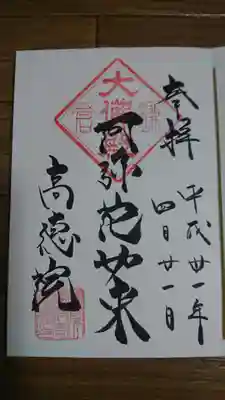 奉拝
平成廿一年
四月廿一日
阿弥陀如来
高徳院